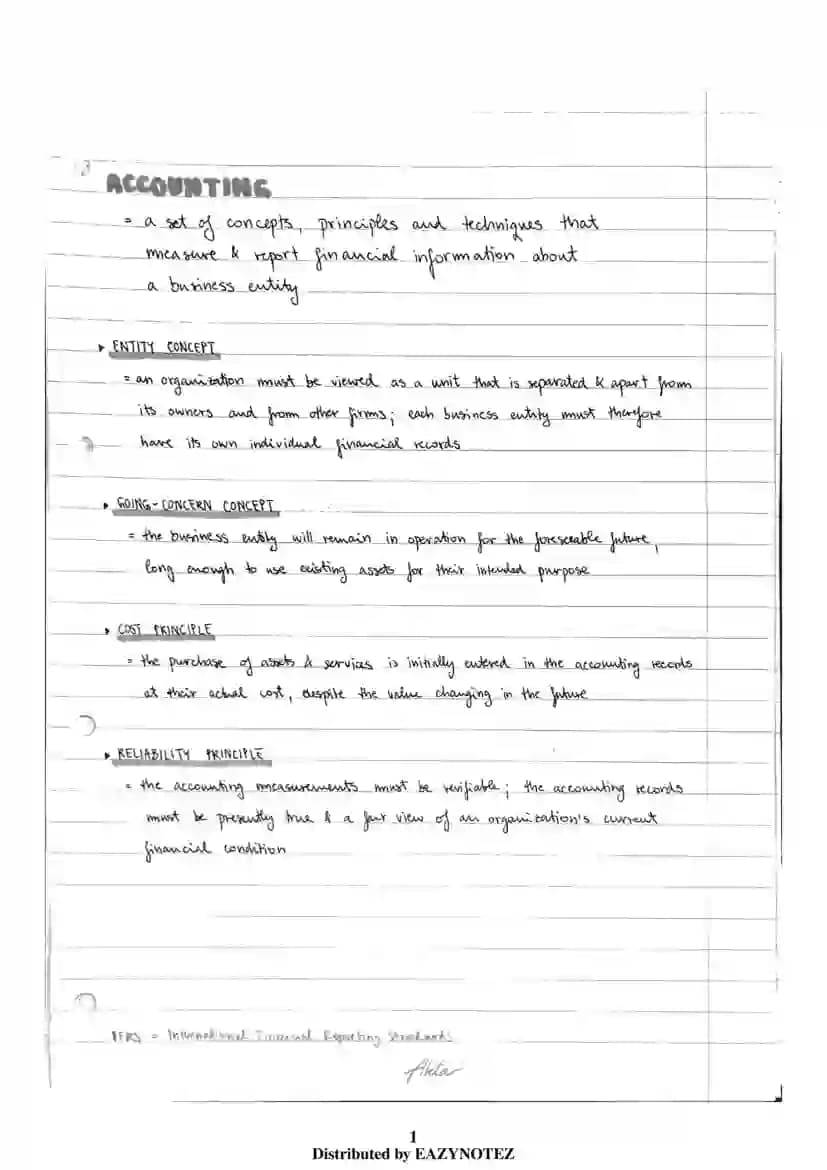 ACCOUNTING
= a set of concepts, principles and techniques that
measure & report financial information about
a business entity
▸ ENTITY CONCEPT
= an organization must be viewed as a unit that is separated & apart from
its owners and from other firms; each business entity must therefore
have its own individual financial records
▸ GOING-CONCERN CONCEPT
= the business entity will remain in operation for the foreseeable future,
long enough to use existing assets for their intended purpose
▸ COST PRINCIPLE
= the purchase of assets & services is initially entered in the accounting records
at their actual cost, despite the value changing in the future
▸ RELIABILITY PRINCIPLE
= the accounting measurements must be verifiable; the accounting records
must be presently true & a fair view of an organization's current
financial condition
IFRS = International Financial Reporting Standards
1
Distributed by EAZYNOTEZ